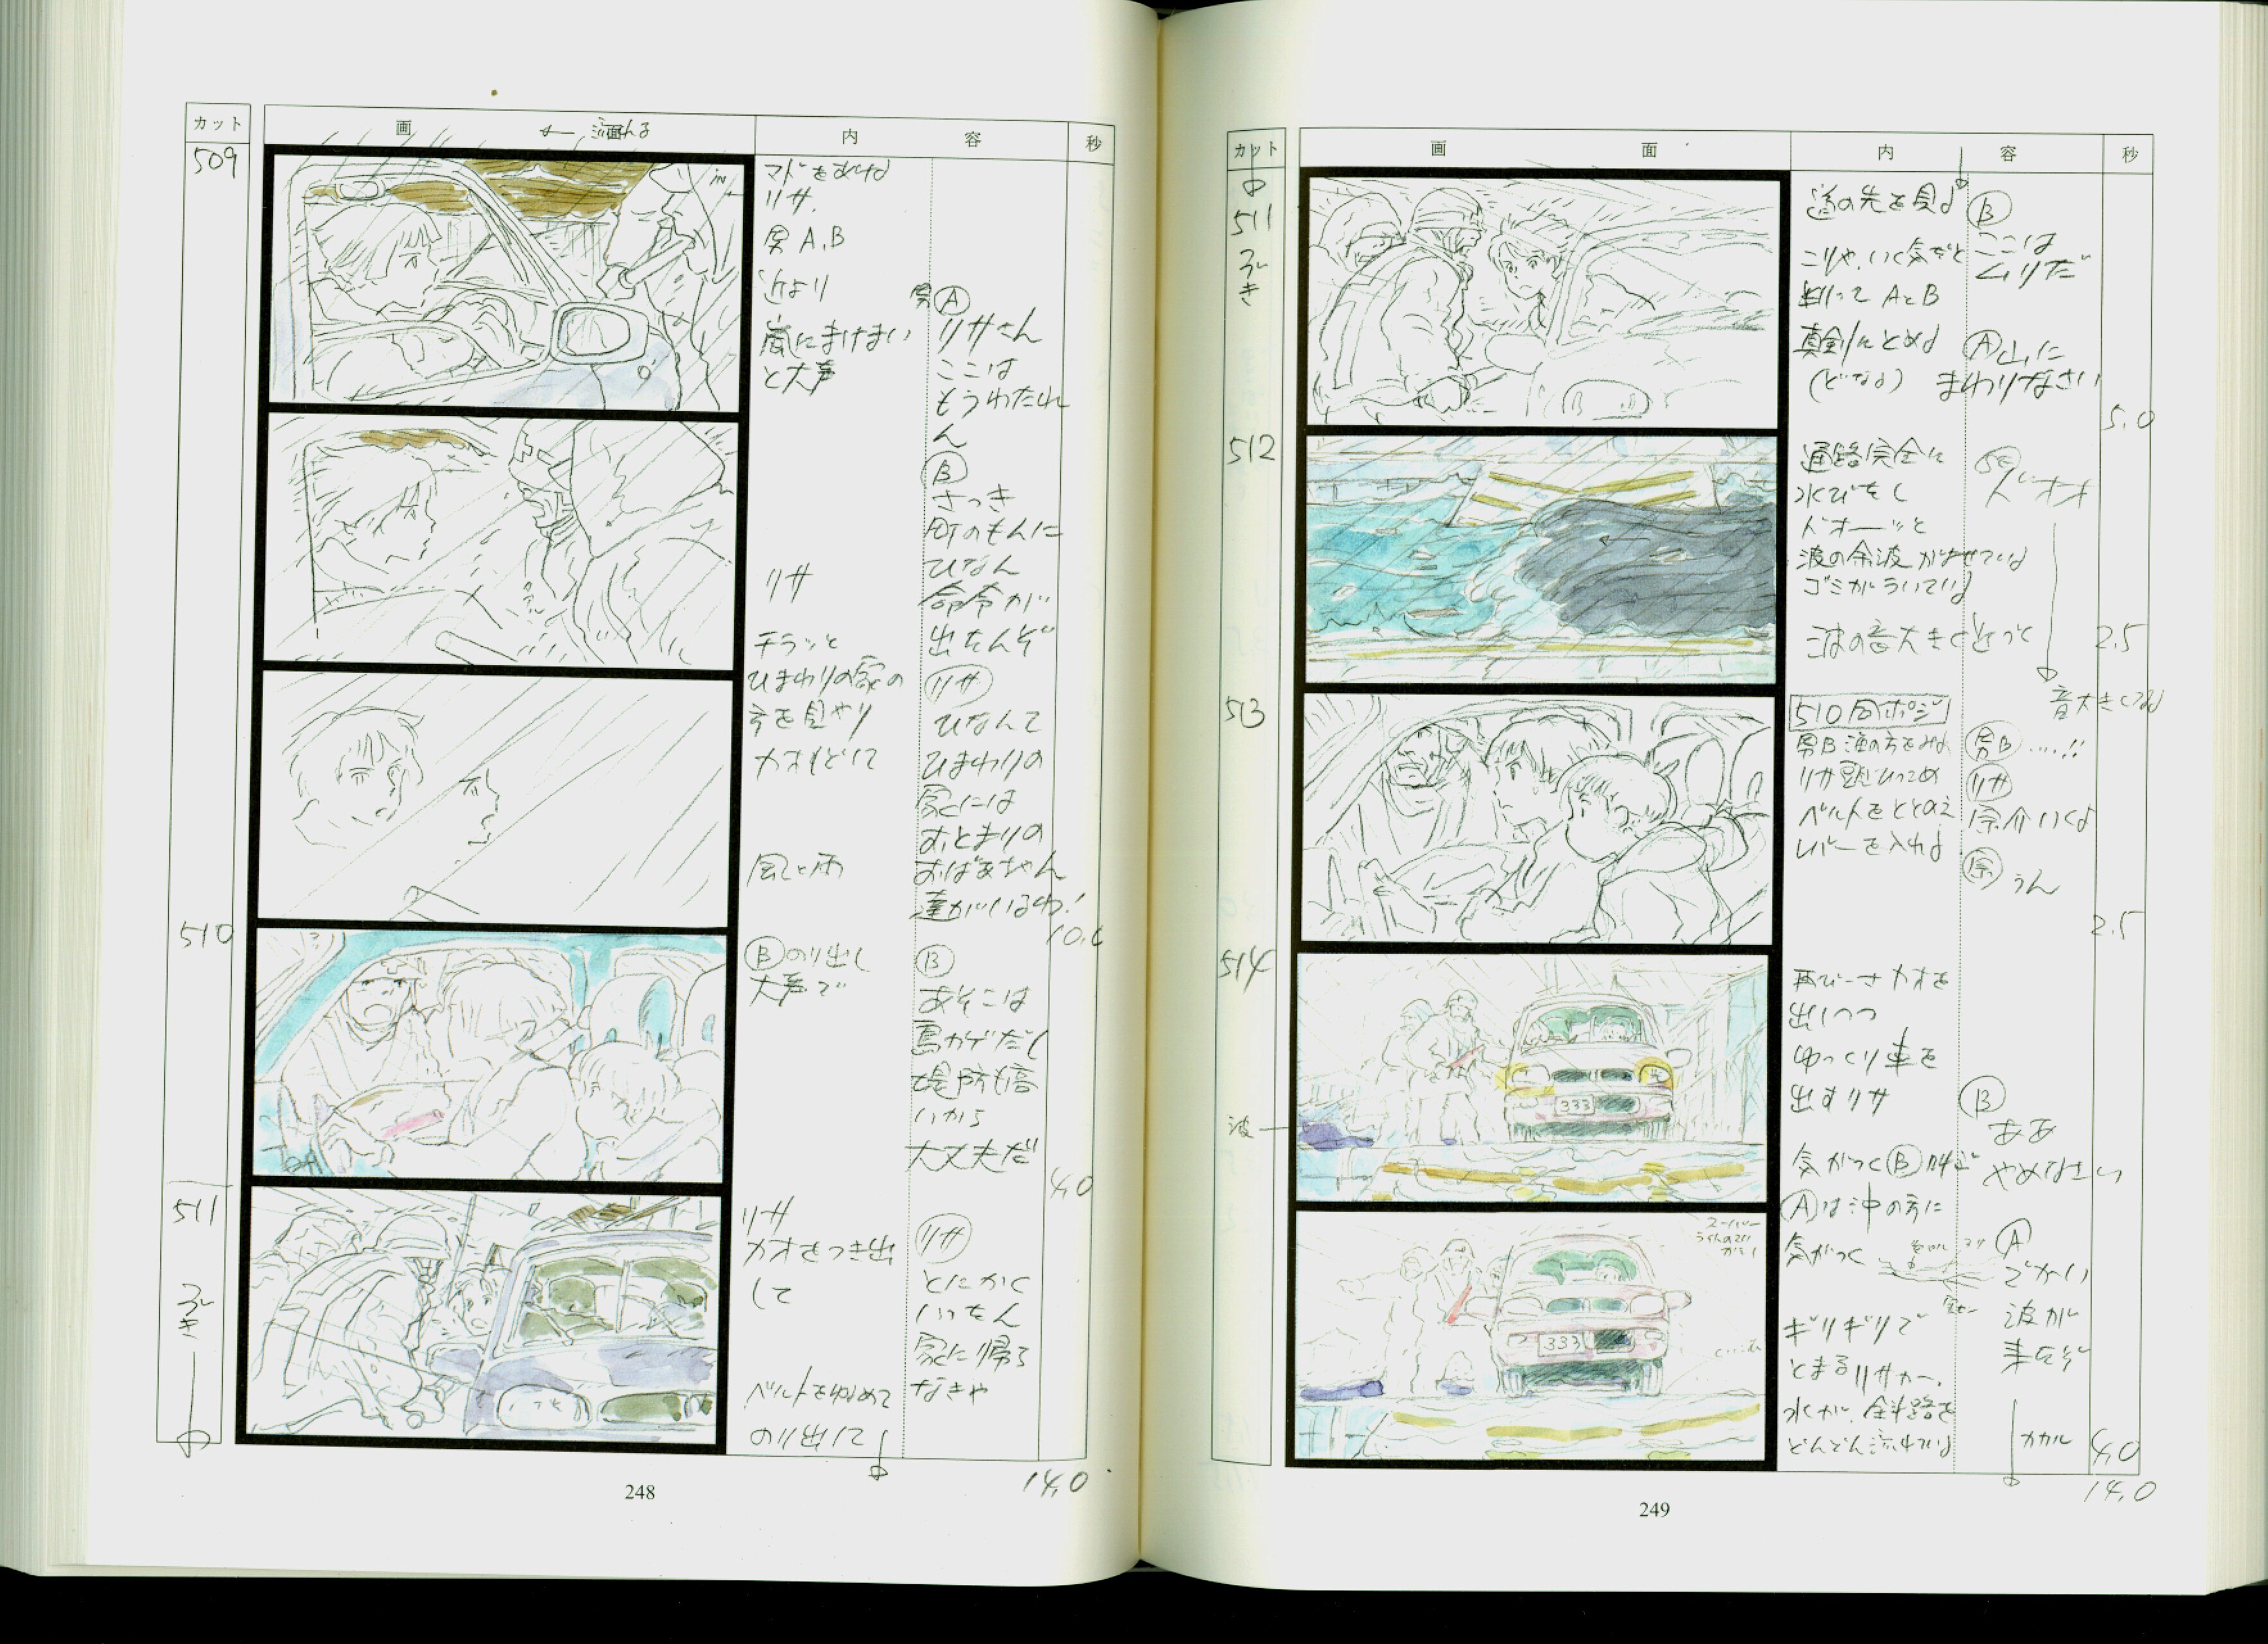 カット
画
内
容
秒
509
マドをあける
リサ.
男 A.B
近より
嵐にまけまい
と大声
男Ⓐ
リサさん
ここは
もうわたれ
ん
Ⓑ
さっき
町のもんに
ひなん
命令が
出たんぞ
リサ
チラッと
ひまわりの家の
方を見やり
カオもどして
風と雨
リサ
ひなんて
ひまわりの
家には
おとまりの
おばあちゃん
達がいるわ!
510
Ⓑのり出し
大声で
Ⓑ
あそこは
島カゲだし
堤防も倍
いから
大丈夫だ
4.0
511
リサ
カオをつき出
して
ベルトをゆるめて
のり出して
リサ
とにかく
いっぺん
家に帰ら
なきゃ
つづき
14.0
248
カット
画
面
内
容
秒
511
つづき
道の先を見る
こりゃ、いく気だと
Ⓑ
ここは
ムリだ
AとB
真剣にとめる
(どなる)
Ⓐ山に
まわりなさい
5.0
512
通路完全に
水びたし
ドオーッと
波の余波がよせている
ゴミがういている
波の音大きくとどろく
2.5
音大きくなる
513
510同ポジ
男B 海の方をみる
リサ頭ひっこめ
ベルトをととのえ
レバーを入れる
男B ....!!
リサ
宗介いくよ
宗 うん
2.5
514
再びーさカオを
出しつつ
ゆっくり車を
出すリサ
波
気がつくⒷ叫ぶ
Ⓐは沖の方に
気がつく
ギリギリで
とまるリサカー.
水が、斜路を
どんどん流れている
Ⓑ
ああ
やめなさい
Ⓐ
でかい
波が
来たぞ
カカル
333
333
4.0
14.0
249